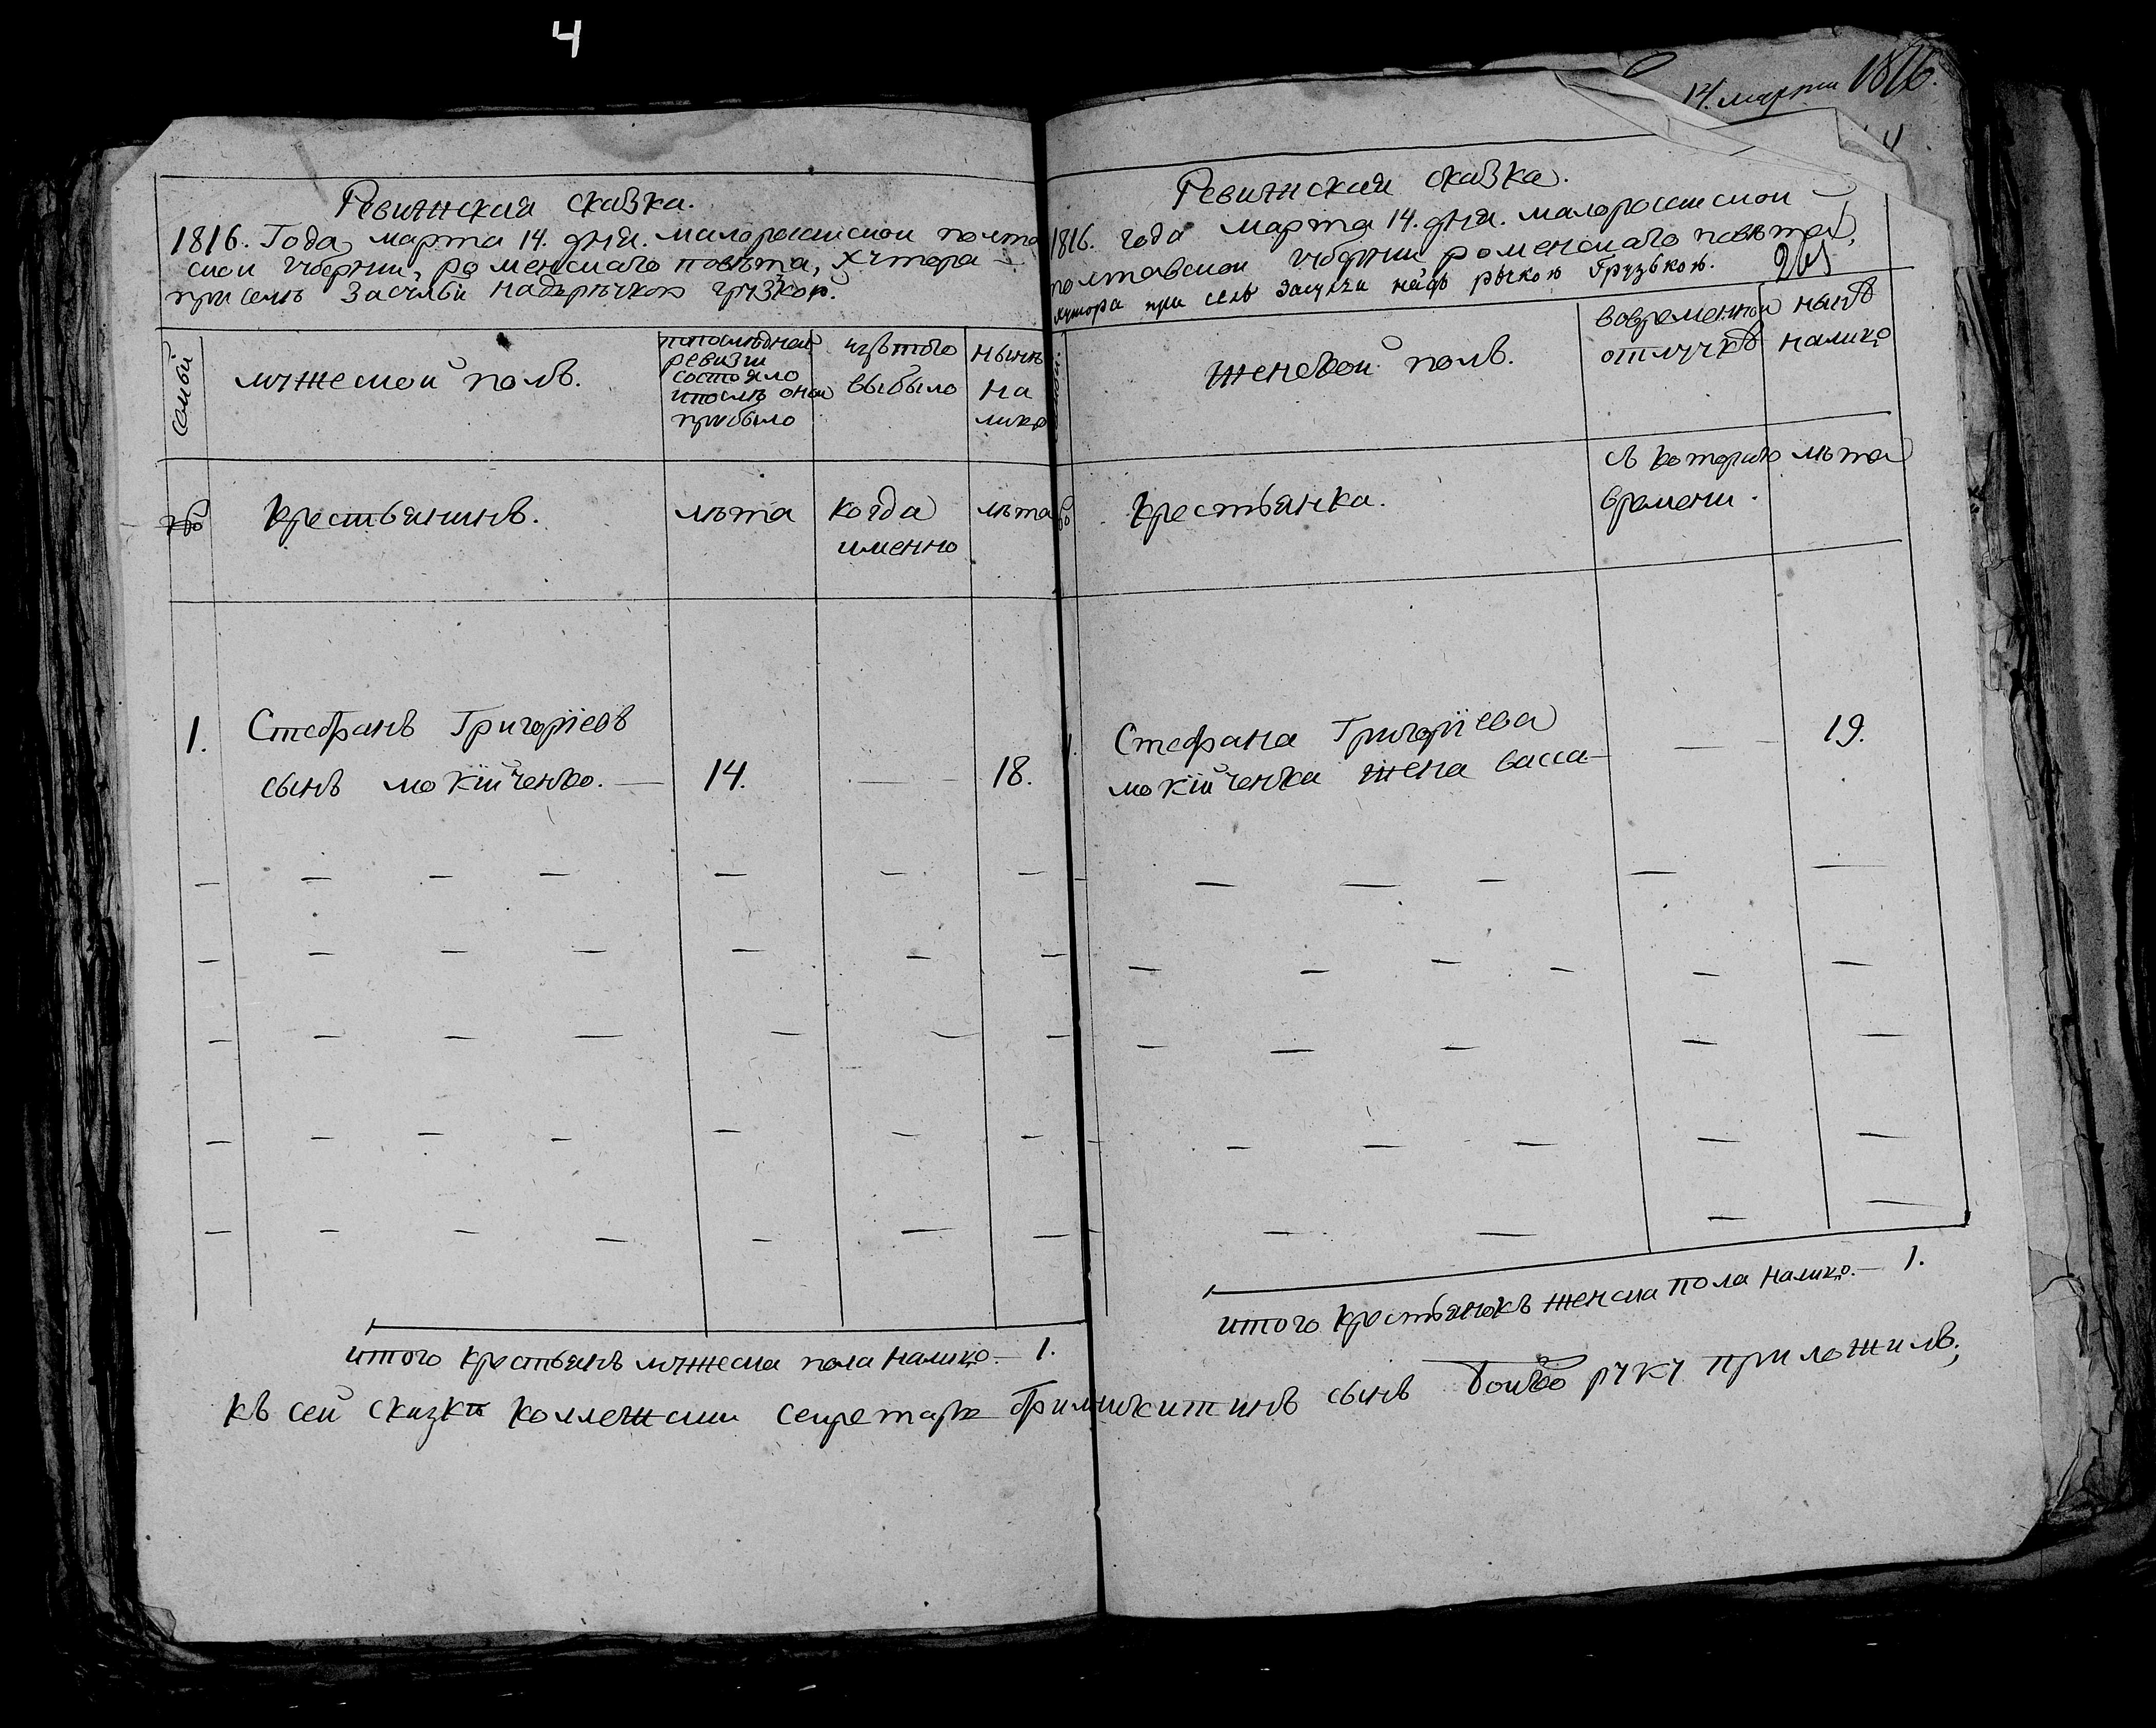 4
14. марта 1816.
4
Ревижская сказка.
1816. Года, марта 14. дня. малороссиской полта
ской губернии, роменскаго повѣта, хутора
при селѣ Засульи надърѣчкою грузкою.
семьи
мужеской полъ.
попоследней
ревизии
состояло
ипослѣ оной
прибыло
изътого
выбыло
нынѣ
на
лицо
Крестьянинъ.
лѣта
когда
именно
лѣта
1.
Стефанъ Григорїевъ
сынъ мокїйченко. — 14. — 18.
итого крестьянъ мужеска пола налицо. — 1.
Ревижская сказка.
1816. года марта 14. дня. малороссиской
полтавской губернии роменскаго повѣта,
хутора при селѣ Засульи надъ рѣчкою Грузькою.
261
женской полъ.
вовременной
отлучкѣ
нынѣ
налицо
Крестьянка.
съ которого
времени.
лѣта
1.
Стефана Григорїева
мокїйченка жена васса — — 19.
итого крестьянокъ женска пола налицо. — 1.
къ сей сказкѣ коллежский секретарь сынъ руку приложилъ;